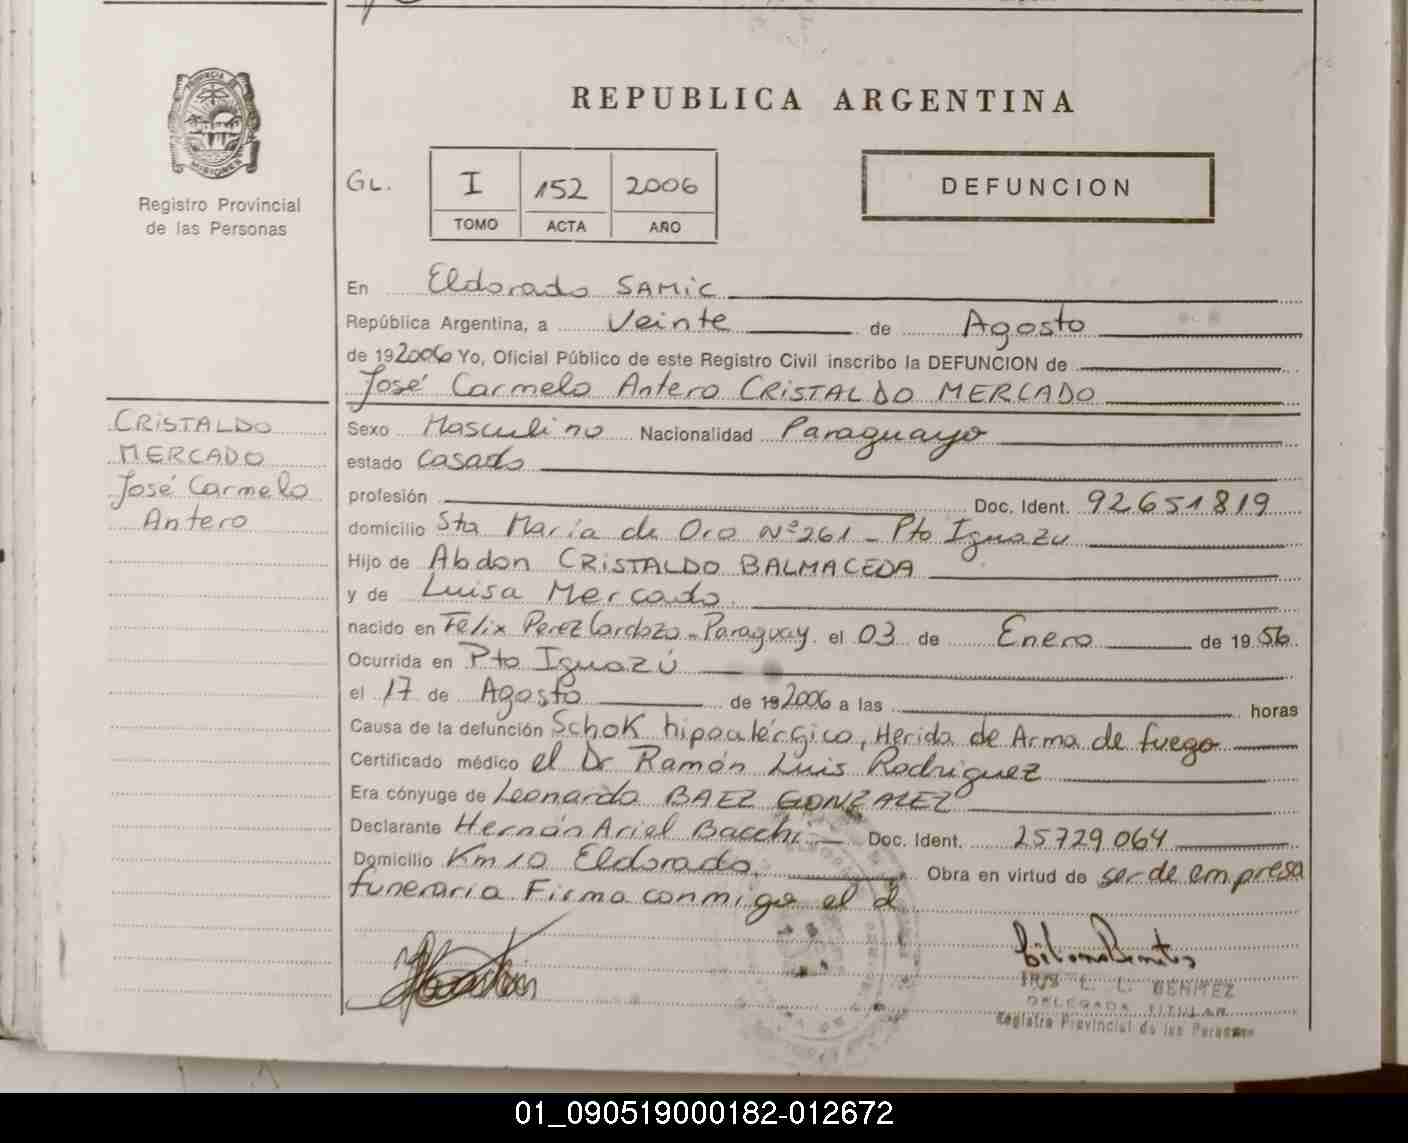 PROVINCIA DE
MISIONES
Registro Provincial
de las Personas
REPUBLICA ARGENTINA
GL. I 152 2006
TOMO ACTA AÑO
DEFUNCION
En Eldorado SAMIC
República Argentina, a Veinte de Agosto
de 192006 Yo, Oficial Público de este Registro Civil inscribo la DEFUNCION de
José Carmelo Antero CRISTALDO MERCADO
CRISTALDO
MERCADO
José Carmelo
Antero
Sexo Masculino Nacionalidad Paraguayo
estado casado
profesión Doc. Ident. 92651819
domicilio Sta María de Oro Nº261 - Pto Iguazu
Hijo de Abdon CRISTALDO BALMACEDA
y de Luisa Mercado.
nacido en Félix Perez Cardozo - Paraguay el 03 de Enero de 1956.
Ocurrida en Pto Iguazú
el 17 de Agosto de 192006 a las horas
Causa de la defunción Schok hipoalérgico, Herida de Arma de fuego
Certificado médico el Dr Ramón Luis Rodriguez
Era cónyuge de Leonarda BAEZ GONZALEZ
Declarante Hernán Ariel Bacchi Doc. Ident. 25729064
Domicilio Km 10 Eldorado. Obra en virtud de ser de empresa
funeraria Firma conmigo el d
L. L. BENITEZ
DELEGADA TITULAR
Registro Provincial de las Personas
01_090519000182-012672